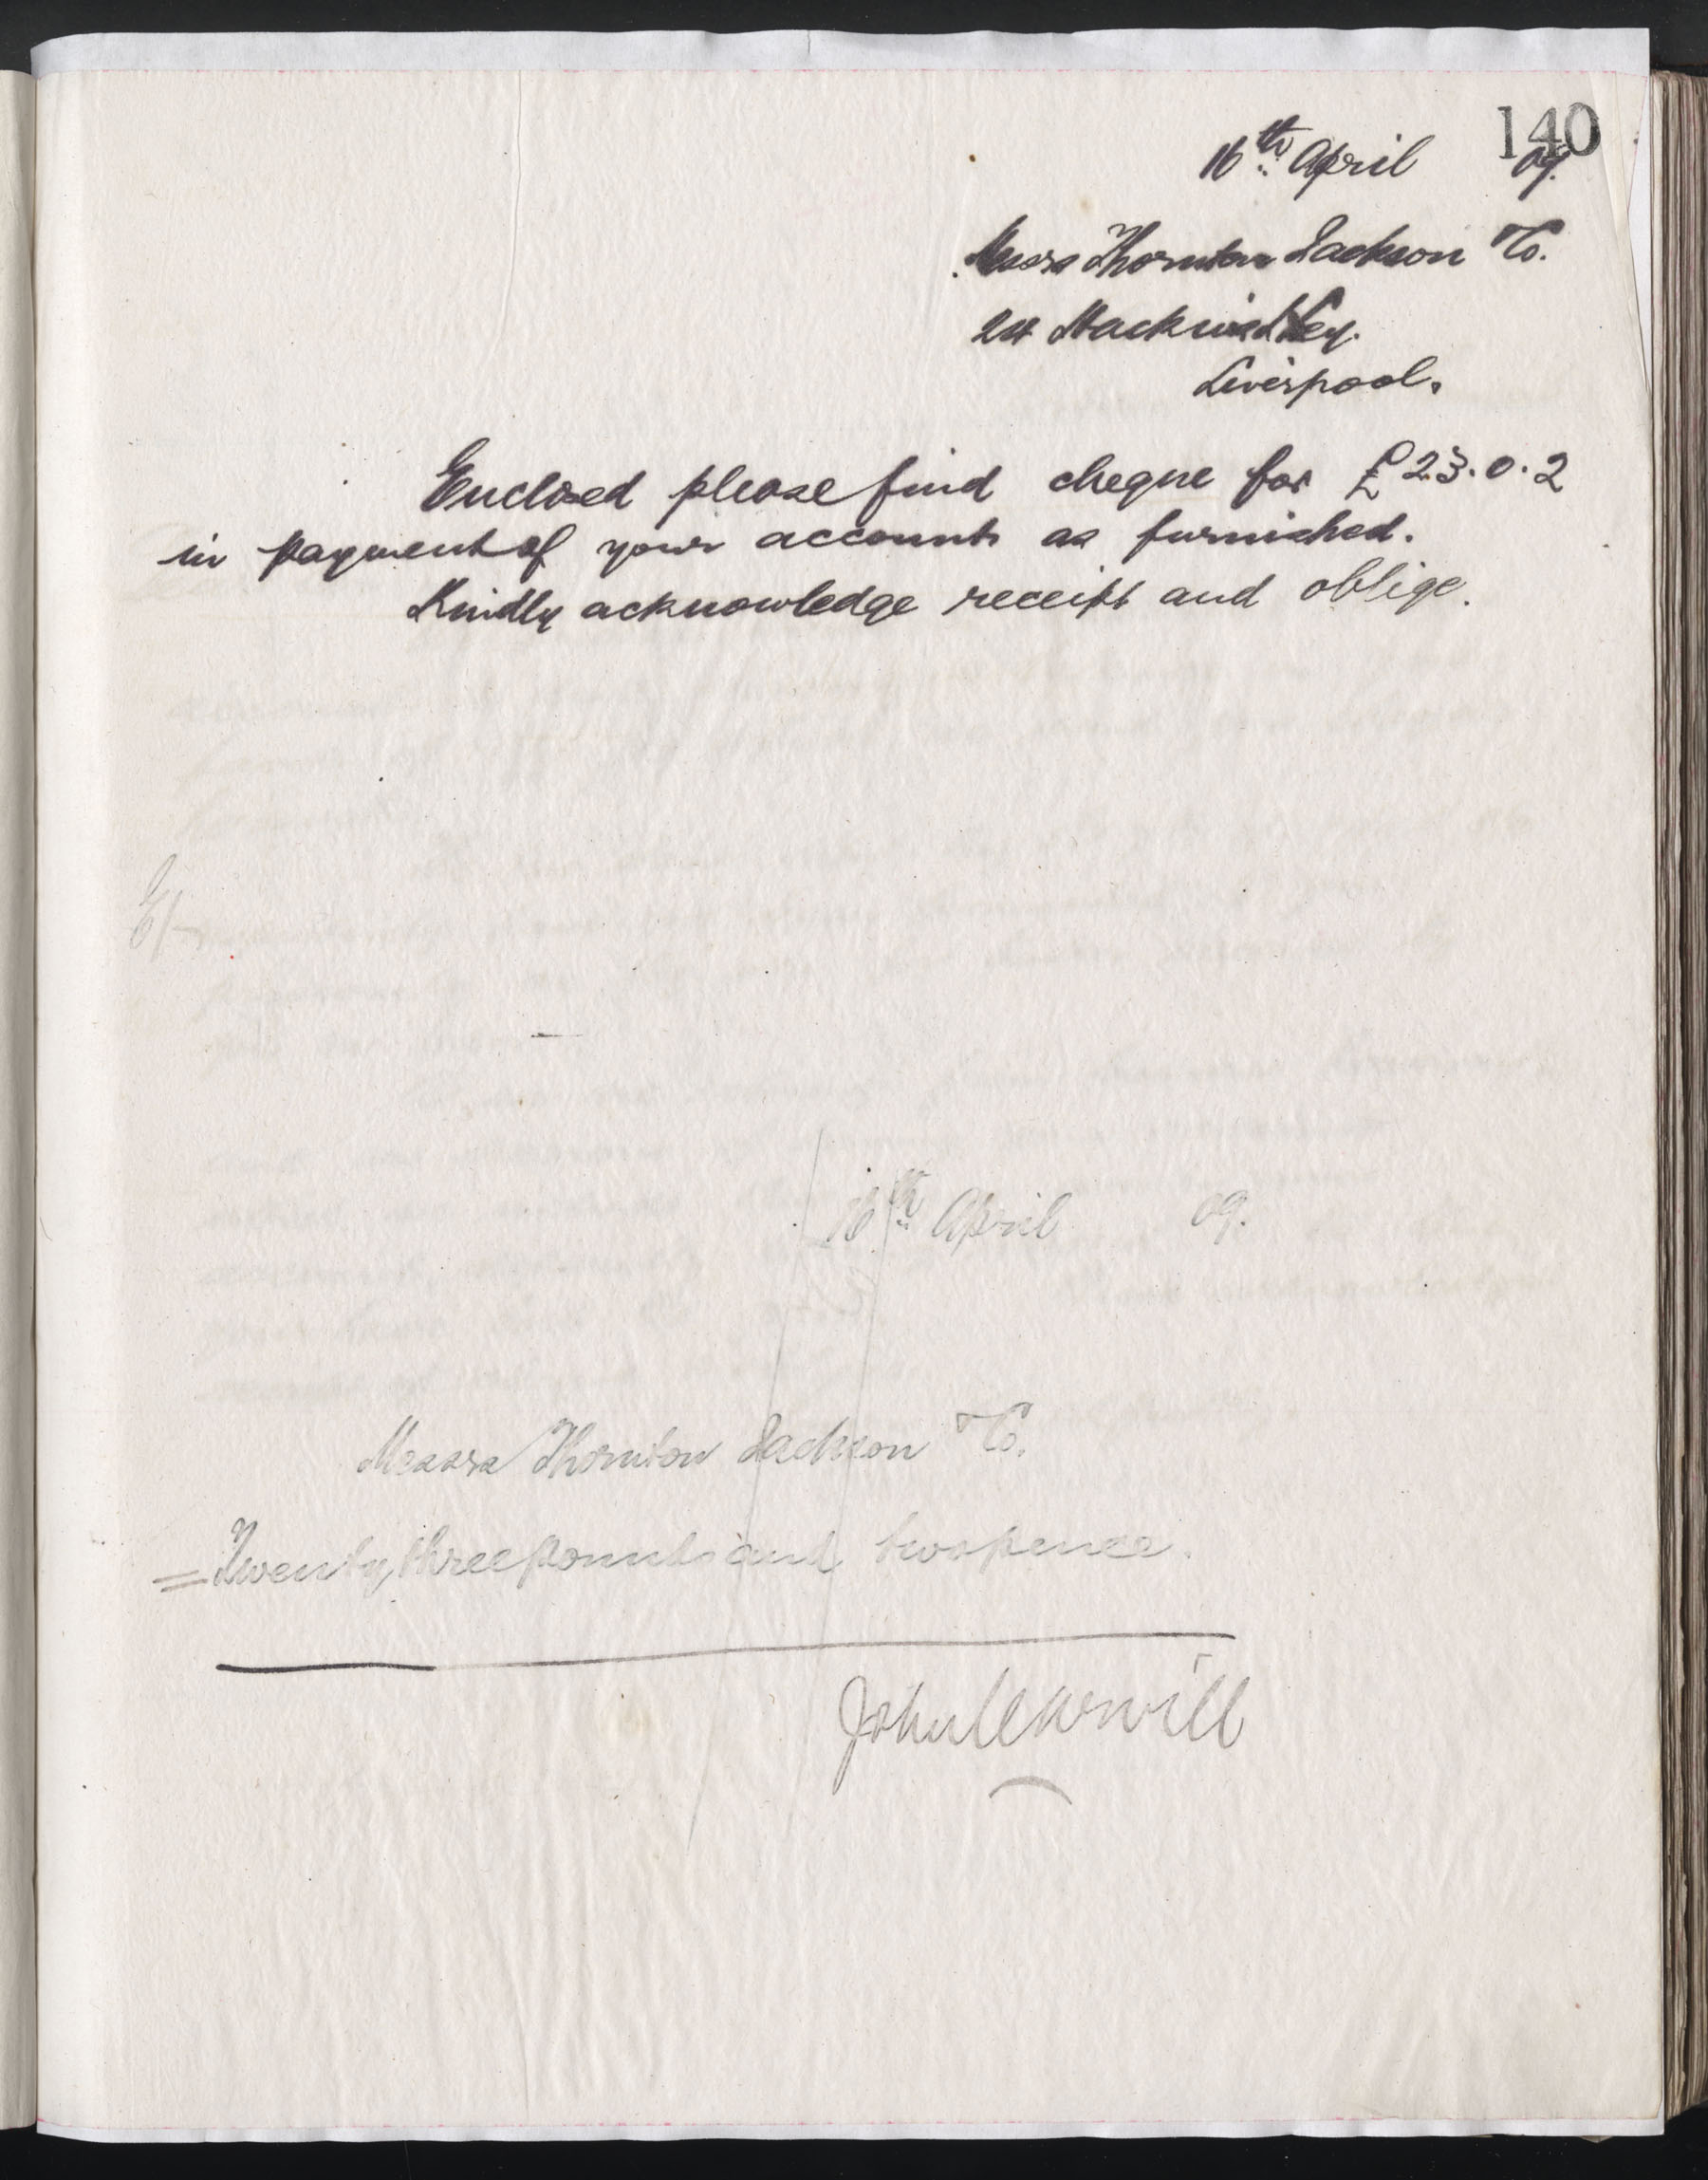 140
16th April 09.
Messrs Thornton Jackson & Co.
24 Hey.
Liverpool.
Enclosed please find cheque for £23.0.2
in payment of your accounts as furnished.
Kindly acknowledge receipt and oblige.
16th April 09.
Messrs Thornton Jackson & Co.
Twenty three pounds and twopence.
John